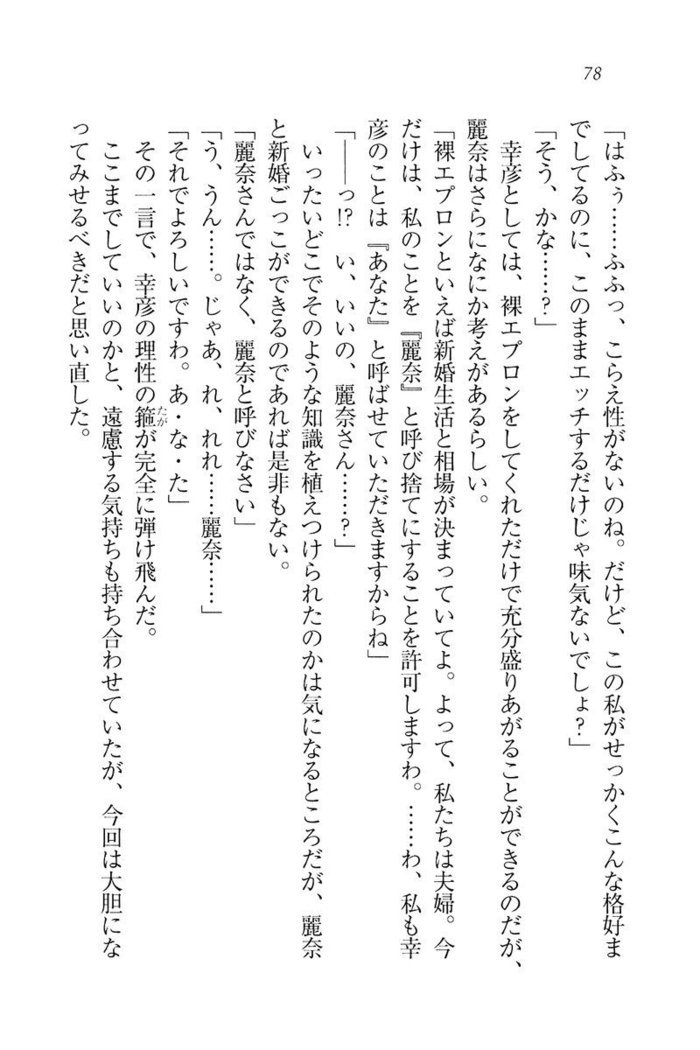 78
「はふぅ……ふふっ、こらえ性がないのね。だけど、この私がせっかくこんな格好ま
でしてるのに、このままエッチするだけじゃ味気ないでしょ？」
「そう、かな……？」
幸彦としては、裸エプロンをしてくれただけで充分盛りあがることができるのだが、
麗奈はさらになにか考えがあるらしい。
「裸エプロンといえば新婚生活と相場が決まっていてよ。よって、私たちは夫婦。今
だけは、私のことを『麗奈』と呼び捨てにすることを許可しますわ。……わ、私も幸
彦のことは『あなた』と呼ばせていただきますからね」
「――っ!?　い、いいの、麗奈さん……？」
いったいどこでそのような知識を植えつけられたのかは気になるところだが、麗奈
と新婚ごっこができるのであれば是非もない。
「麗奈さんではなく、麗奈と呼びなさい」
「う、うん……。じゃあ、れ、れれ……麗奈……」
「それでよろしいですわ。あ・な・た」
その一言で、幸彦の理性の箍（たが）が完全に弾け飛んだ。
ここまでしていいのかと、遠慮する気持ちも持ち合わせていたが、今回は大胆にな
ってみせるべきだと思い直した。